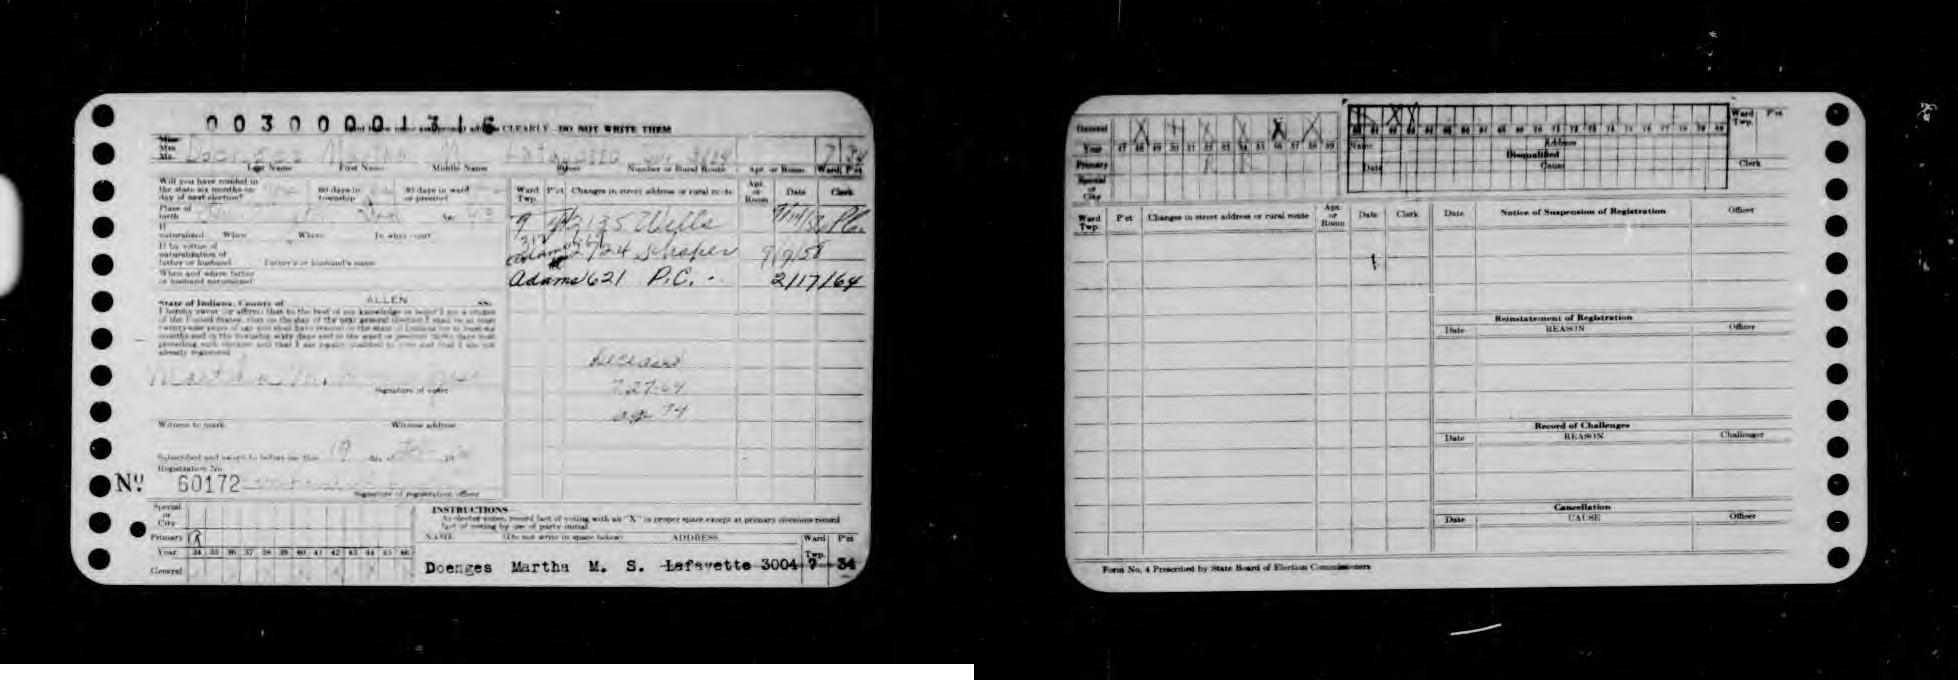 0030000131
CLEARLY DO NOT WRITE THEM
Miss
Mrs.
Mr. Doenges Martha M. Lafayette
Last Name First Name Middle Name Street Number or Rural Route Apt. or Room Ward P'ct
7 34
Will you have resided in
the state six months on
day of next election?
60 days in
township
30 days in ward
or precinct
Place of
birth
If
naturalized When Where In what court
If by virtue of
naturalization of
father or husband Father's or husband's name
When and where father
or husband naturalized
Ward
Twp. P'ct Changes in street address or rural route Apt.
or
Room Date Clerk
9 2135 Wells
Adams 2424 Schaper 9/9/58
Adams 621 P.C. 2/17/64
Deceased
7-27-64
age 74
State of Indiana, County of ALLEN SS:
I hereby swear (or affirm) that to the best of my knowledge or belief I am a citizen
of the United States, that on the day of the next general election I shall be at least
twenty-one years of age and shall have resided in the state of Indiana for at least six
months and in the township sixty days and in the ward or precinct thirty days next
preceding such election and that I am legally qualified to vote and that I am not
already registered.
Signature of voter
Witness to mark Witness address
Subscribed and sworn to before me this 19 day of
Registration No.
No. 60172
Signature of registration officer
Special
or
City
Primary R
Year 34 35 36 37 38 39 40 41 42 43 44 45 46
General
INSTRUCTIONS
As elector votes, record fact of voting with an "X" in proper space except at primary elections record
fact of voting by use of party initial.
NAME (Do not write in space below) ADDRESS Ward
Twp. P'ct
Doenges Martha M. S. Lafayette 3004 7 34
General X X X X X X
Year 47 48 49 50 51 52 53 54 55 56 57 58 59
Primary
Special
or
City
60 61 62 63 64 65 66 67 68 69 70 71 72 73 74 75 76 77 78 79 80
Name Address
Disqualified
Date Cause
Ward
Twp. P'ct
Clerk
Ward
Twp. P'ct Changes in street address or rural route Apt.
or
Room Date Clerk
Date Notice of Suspension of Registration Officer
Reinstatement of Registration
Date REASON Officer
Record of Challenges
Date REASON Challenger
Cancellation
Date CAUSE Officer
Form No. 4 Prescribed by State Board of Election Commissioners